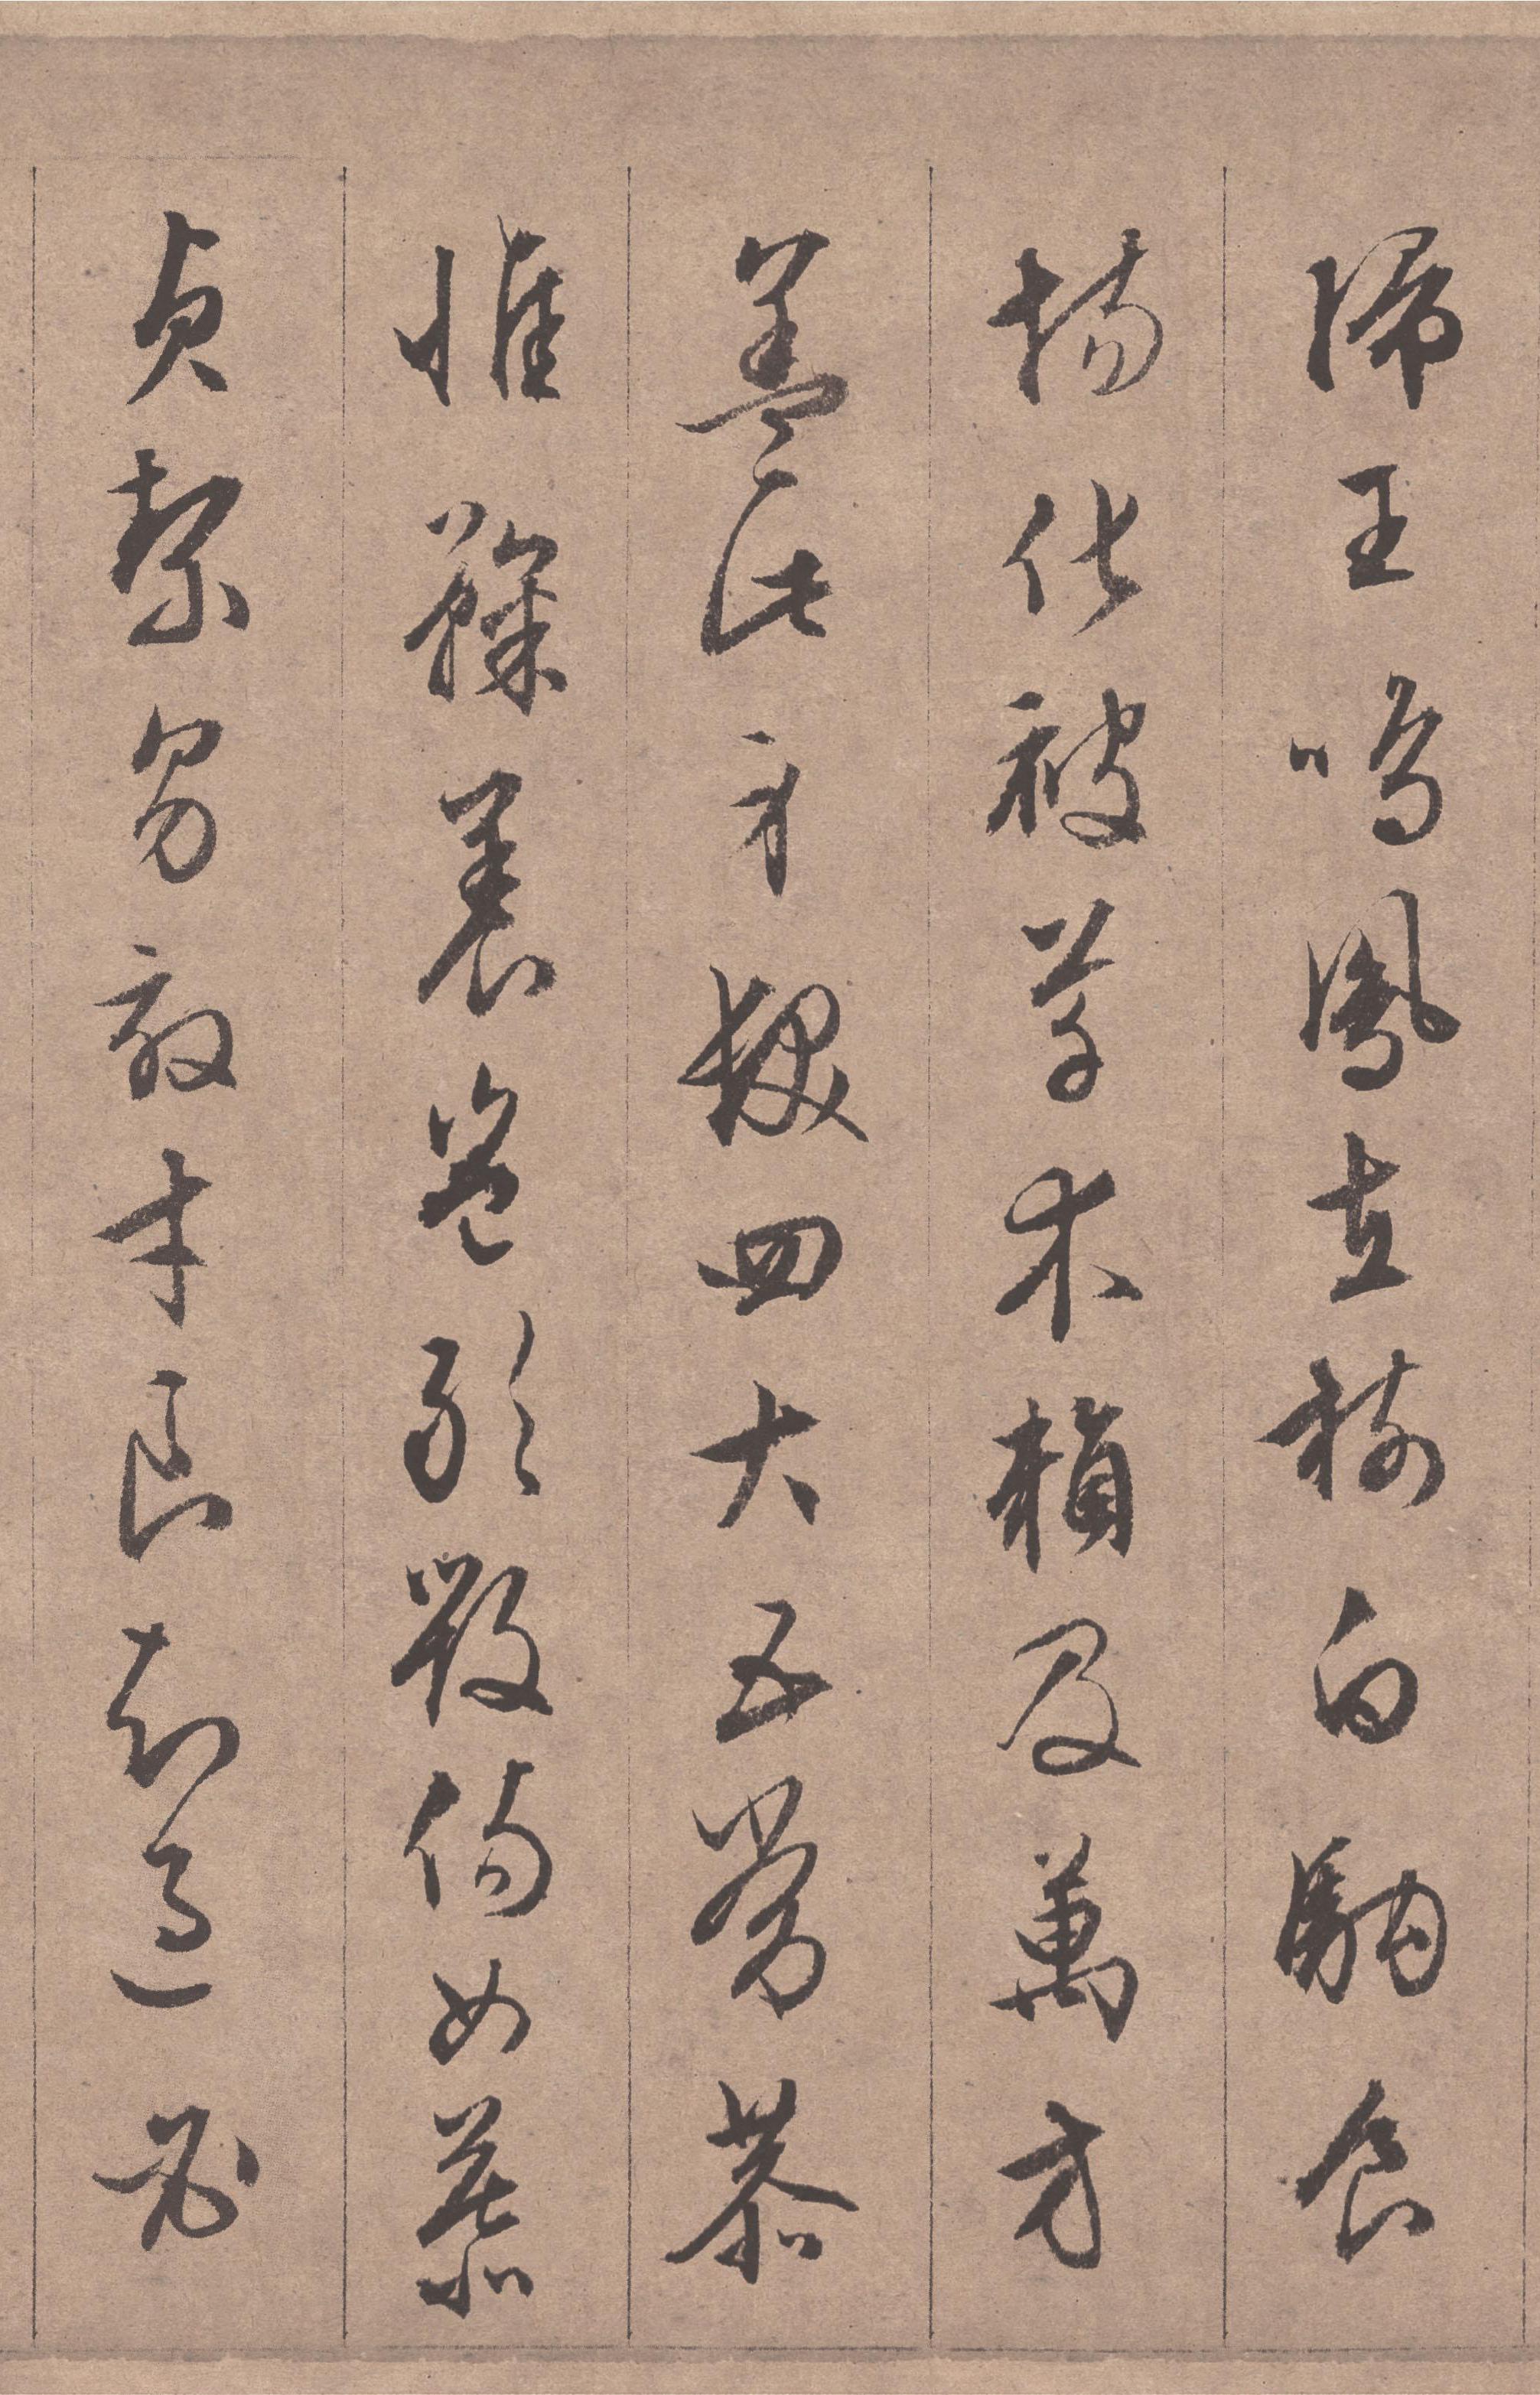 歸王鳴鳳在樹白駒食
場化被草木賴及萬方
蓋此身髮四大五常恭
惟鞠養豈敢毀傷女慕
貞絜男效才良知過必